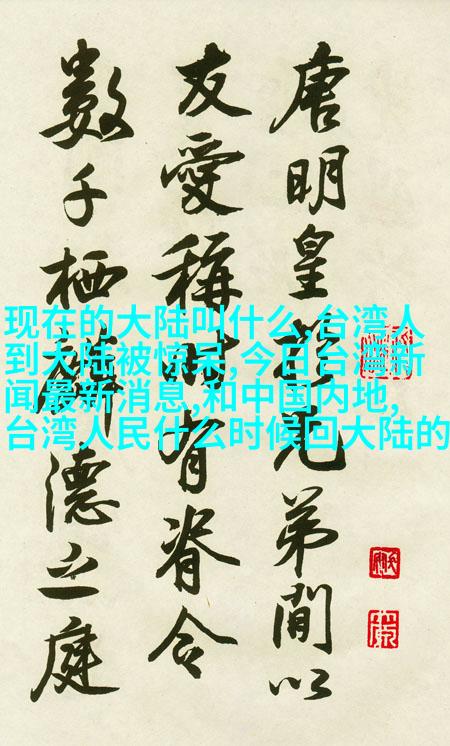 唐明皇兄弟間以
友愛稱時有脊令
數千栖麟德之庭
现在的大陆叫什么,台湾人
到大陆被惊呆,今日台湾新
闻最新消息,和中国内地,
台湾人民什么时候回大陆的